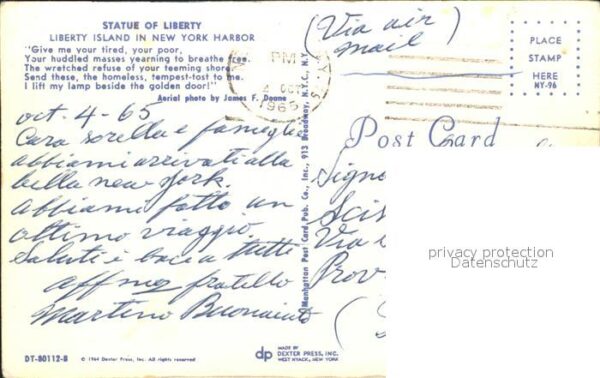 STATUE OF LIBERTY
LIBERTY ISLAND IN NEW YORK HARBOR
"Give me your tired, your poor,
Your huddled masses yearning to breathe free.
The wretched refuse of your teeming shore.
Send these, the homeless, tempest-tost to me.
I lift my lamp beside the golden door!"
Aerial photo by James F. Doane
oct-4-65
Cara sorella e famiglia
abbiamo arrivati alla
bella new york.
abbiamo fatto un
ottimo viaggio.
saluti e baci a tutti
affmo fratello
Martino
DT-80112-B
© 1964 Dexter Press, Inc. All rights reserved
Manhattan Post Card Pub. Co., Inc., 913 Broadway, N.Y.C., N.Y.
PM
OCT
1965
N.Y.
(Via air
mail)
PLACE
STAMP
HERE
NY-96
Post Card
Signo
Via
Prov
privacy protection
Datenschutz
dp
MADE BY
DEXTER PRESS, INC.
WEST NYACK, NEW YORK